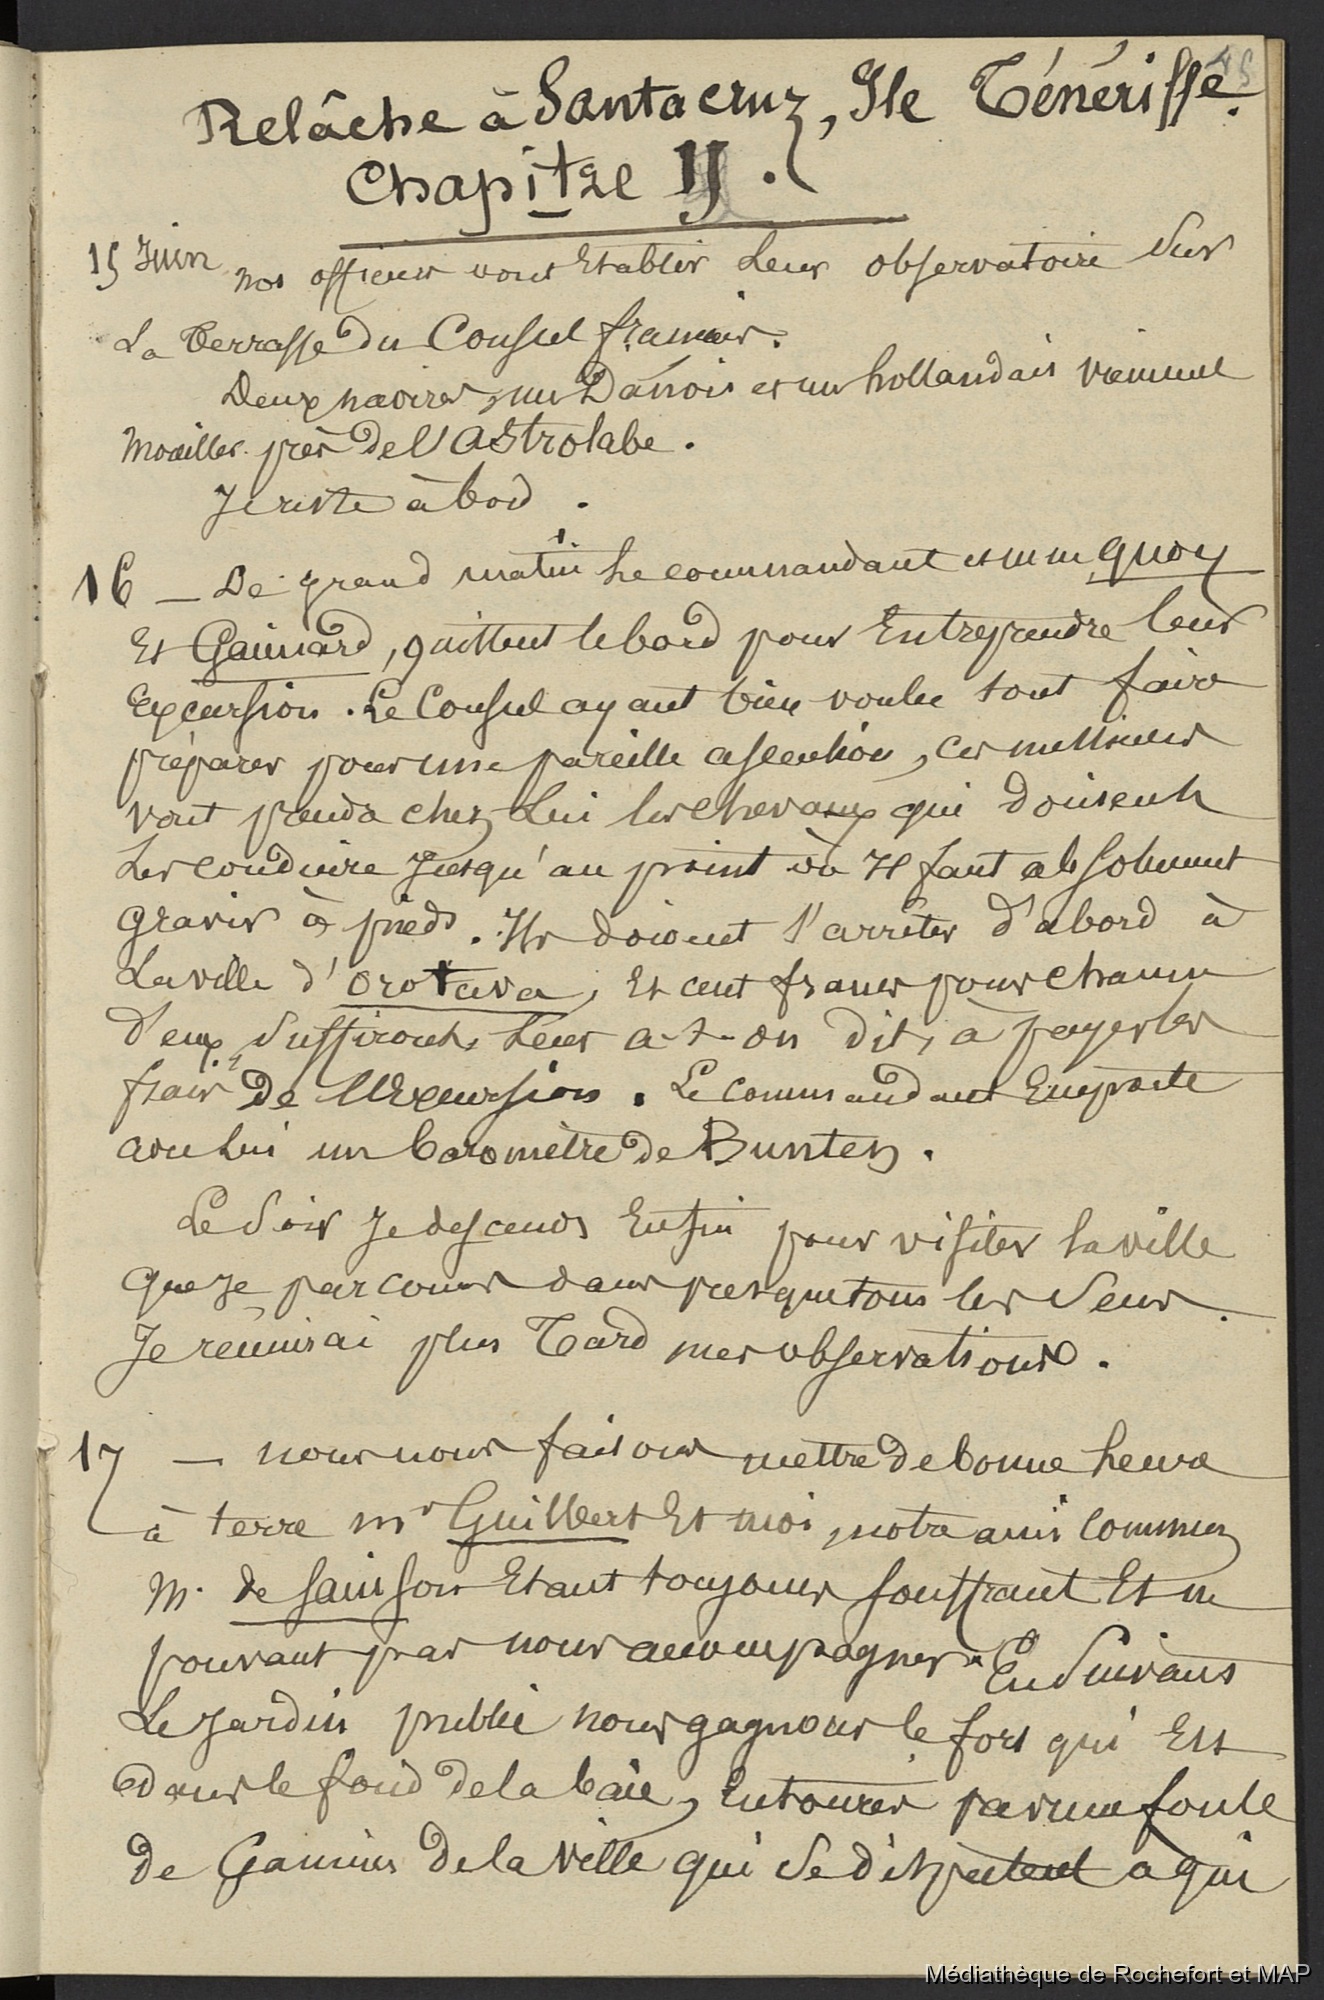 45
Relâche à Santacruz, Ile Ténériffe.
Chapitre II.
15 Juin nos officiers vont Etablir Leur observatoire Sur
La Terrasse du Consul français.
Deux navires, un Danois et un hollandais viennent
Mouiller près de l'Astrolabe.
Je reste à bord.
16 — De grand matin Le commandant et mm Quoy
Et Gaimard, quittent le bord pour Entreprendre leur
Excursion. Le Consul ayant bien voulu tout faire
préparer pour une pareille ascention, ces messieurs
vont prendre chez Lui les chevaux qui doivent
Les conduire Jusqu'au point où Il faut absolument
Gravir à pied. Ils doivent s'arrêter d'abord à
La ville d'Orotava, Et cent francs pour chacun
d'eux, Suffiront, Leur a-t-on dit, à payer les
frais De l'Excursion. Le commandant Emporte
avec Lui un baromètre de Bunten.
Le Soir Je descends Enfin pour visiter la ville
Que Je parcours dans presque tous les Sens.
Je réunirai plus Tard mes observations.
17 — nous nous faisons mettre de bonne heure
à terre mr Guilbert Et moi, notre ami commun
M. de Sainson Etant toujours Souffrant Et ne
pouvant pas nous accompagner. En Suivant
Le Jardin public nous gagnons le fort qui Est
dans le fond de la baie, Entourés par une foule
de Gamins de la ville qui Se disputent a qui
Médiathèque de Rochefort et MAP